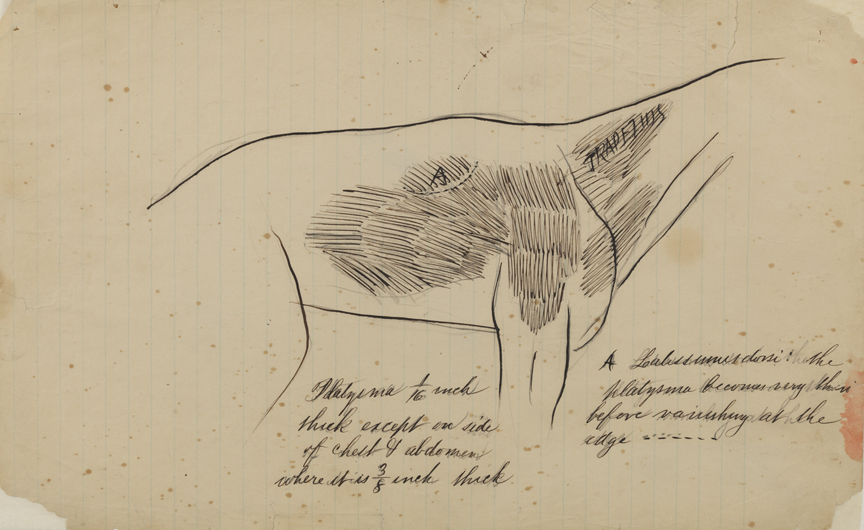 TRAPEZIUS
A
Platysma 1/16 inch
thick except on side
of chest & abdomen
where it is 3/8 inch thick.
A Latissimus dorsi : the
platysma becomes very thin
before vanishing at the
edge ------